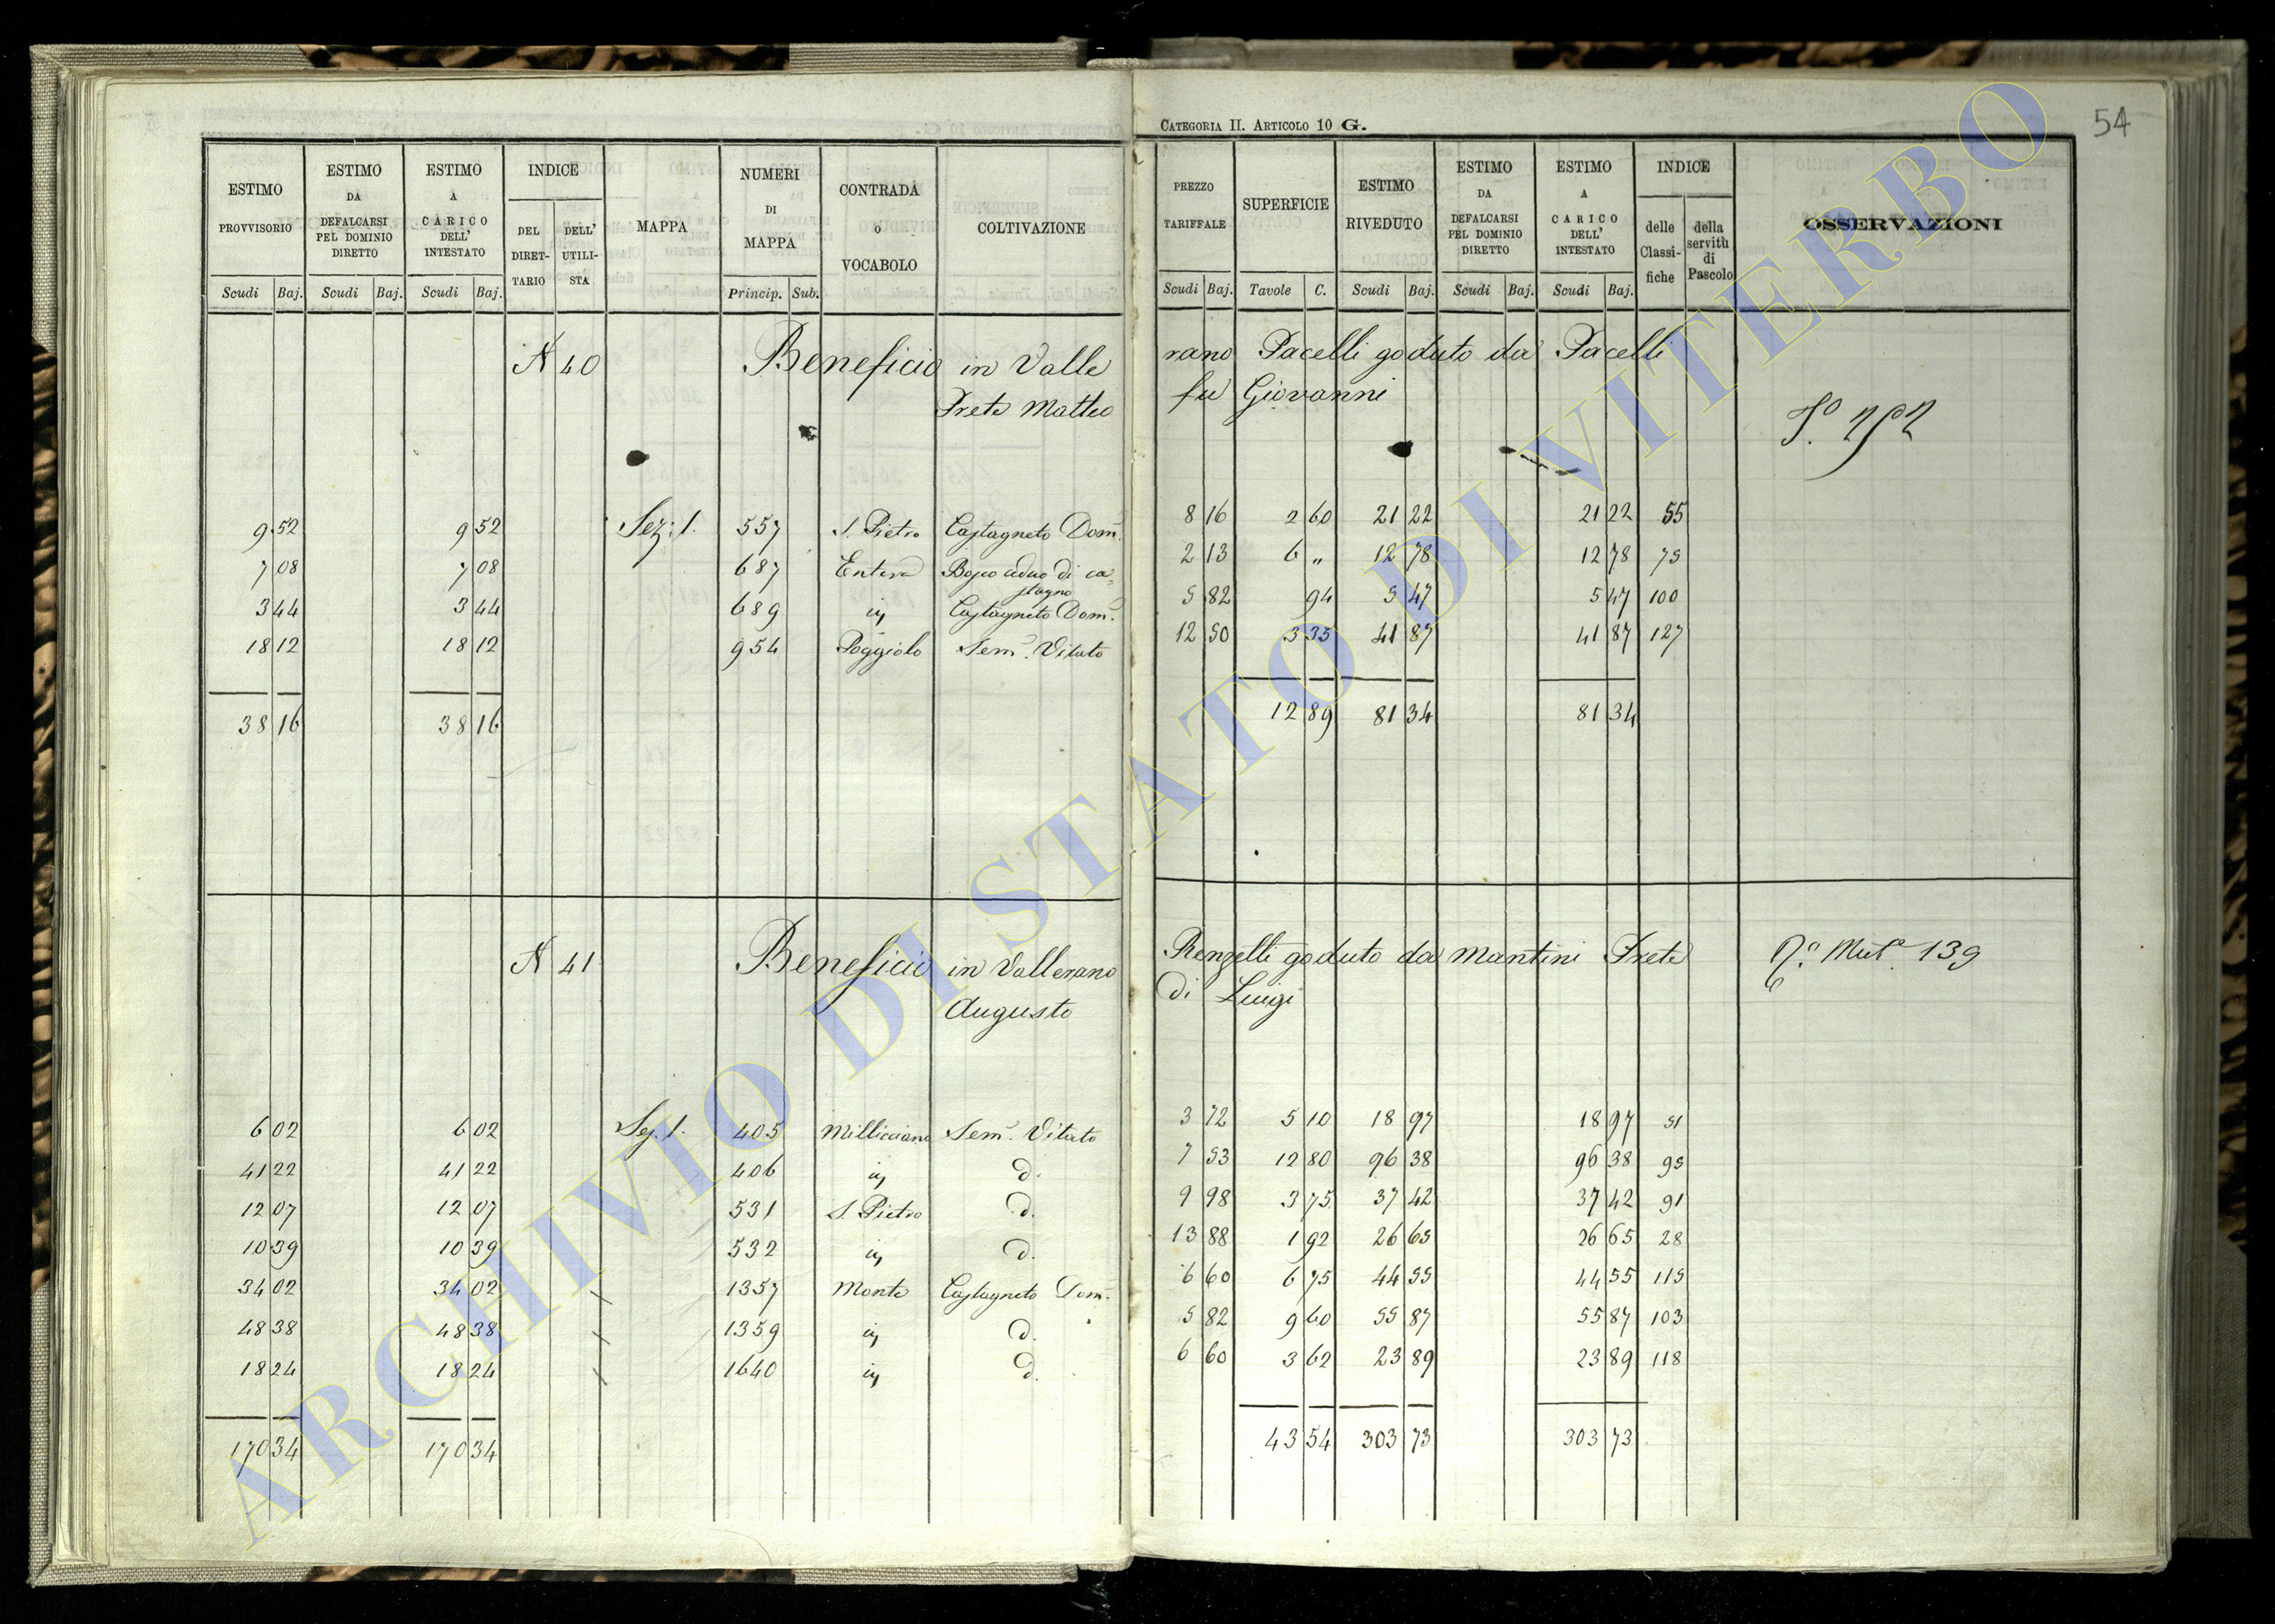 CATEGORIA II. ARTICOLO 10 G.
54
ESTIMO PROVVISORIO
ESTIMO DA DEFALCARSI PEL DOMINIO DIRETTO
ESTIMO A CARICO DELL' INTESTATO
INDICE
DEL DIRETTARIO
DELL' UTILISTA
MAPPA
NUMERI DI MAPPA
CONTRADA O VOCABOLO
COLTIVAZIONE
PREZZO TARIFFALE
SUPERFICIE
ESTIMO RIVEDUTO
ESTIMO DA DEFALCARSI PEL DOMINIO DIRETTO
ESTIMO A CARICO DELL' INTESTATO
INDICE
delle Classifiche
della servitù di Pascolo
OSSERVAZIONI
Scudi Baj. Scudi Baj. Scudi Baj. Princip. Sub. Scudi Baj. Tavole C. Scudi Baj. Scudi Baj. Scudi Baj.
N 40 Beneficio in Valle rano Pacelli goduto da Pacelli
Prete Matteo fu Giovanni
9 52 9 52 Sez: 1. 557 S. Pietro Castagneto Dom. 8 16 2 60 21 22 21 22 55
7 08 7 08 687 Entera Bosco ceduo di castagno 2 13 6 " 12 78 12 78 75
3 44 3 44 689 id Castagneto Dom. 5 82 94 5 47 5 47 100
18 12 18 12 954 Poggiolo Sem. Vitato 12 50 3 35 41 87 41 87 127
38 16 38 16 12 89 81 34 81 34
N 41 Beneficio in Vallerano Renzelli goduto da Mantini Prete Mut. 139
Augusto di Luigi
6 02 6 02 Sez. 1. 405 Millicciano Sem. Vitato 3 72 5 10 18 97 18 97 51
41 22 41 22 406 id d. 7 53 12 80 96 38 96 38 95
12 07 12 07 531 S. Pietro d. 9 98 3 75 37 42 37 42 91
10 39 10 39 532 id d. 13 88 1 92 26 65 26 65 28
34 02 34 02 1357 Monte Castagneto Dom. 6 60 6 75 44 55 44 55 115
48 38 48 38 1359 id d. 5 82 9 60 55 87 55 87 103
18 24 18 24 1640 id d. 6 60 3 62 23 89 23 89 118
170 34 170 34 43 54 303 73 303 73
ARCHIVIO DI STATO DI VITERBO